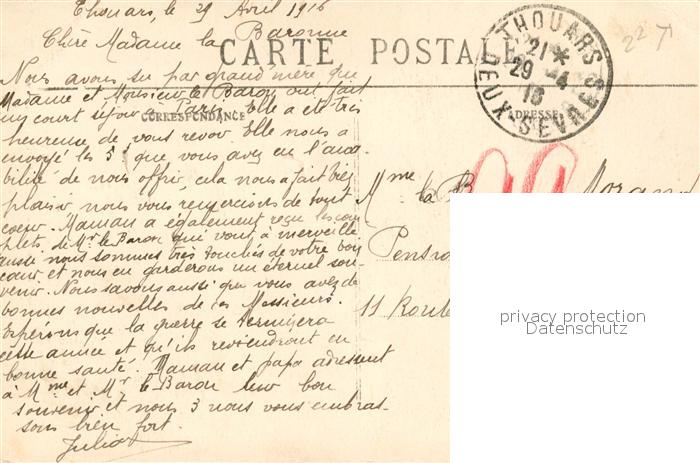 Thouars, le 29 Avril 1916
Chère Madame la Baronne
CARTE POSTALE
THOUARS
21 *
29 -4
16
DEUX-SEVRES
22 71
CORRESPONDANCE
ADRESSE
Nous avons su par grand mère que
Madame et Monsieur le Baron ont fait
un court séjour à Paris. Elle a été très
heureuse de vous revoir. Elle nous a
envoyé les 5f que vous avez eu l'ama-
bilité de nous offrir, cela nous a fait très
plaisir nous vous remercions de tout
coeur. Maman a également reçu les com
plets de Mr le Baron qui vont à merveille
aussi nous sommes très touchés de votre bon
coeur et nous en garderons un éternel sou-
venir. Nous savons aussi que vous avez de
bonnes nouvelles de ces Messieurs.
Espérons que la guerre se terminera
cette année et qu'ils reviendront en
bonne santé. Maman et papa adressent
à Mme et Mr le Baron leur bon
souvenir et nous 3 nous vous embras-
sons bien fort.
Mme la B Morand
Pensio
11 Route
privacy protection
Datenschutz